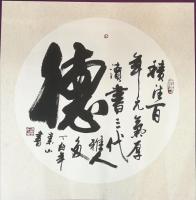 積德百
年元氣厚
讀書三代
雅人
多
德
丁酉年
書